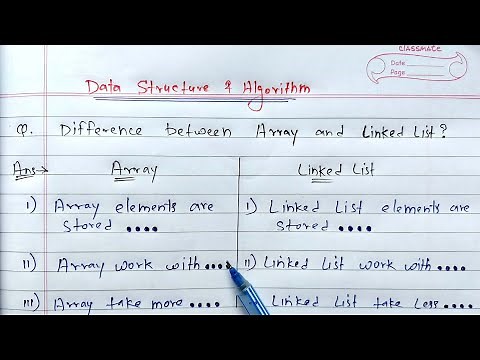 CLASSMATE
Date
Page
Data Structure & Algorithm
Q. Difference between Array and Linked List?
Ans→ Array Linked List
I) Array elements are I) Linked List elements are
stored .... stored ....
II) Array work with .... II) Linked List work with ....
III) Array take more .... Linked List take less ....